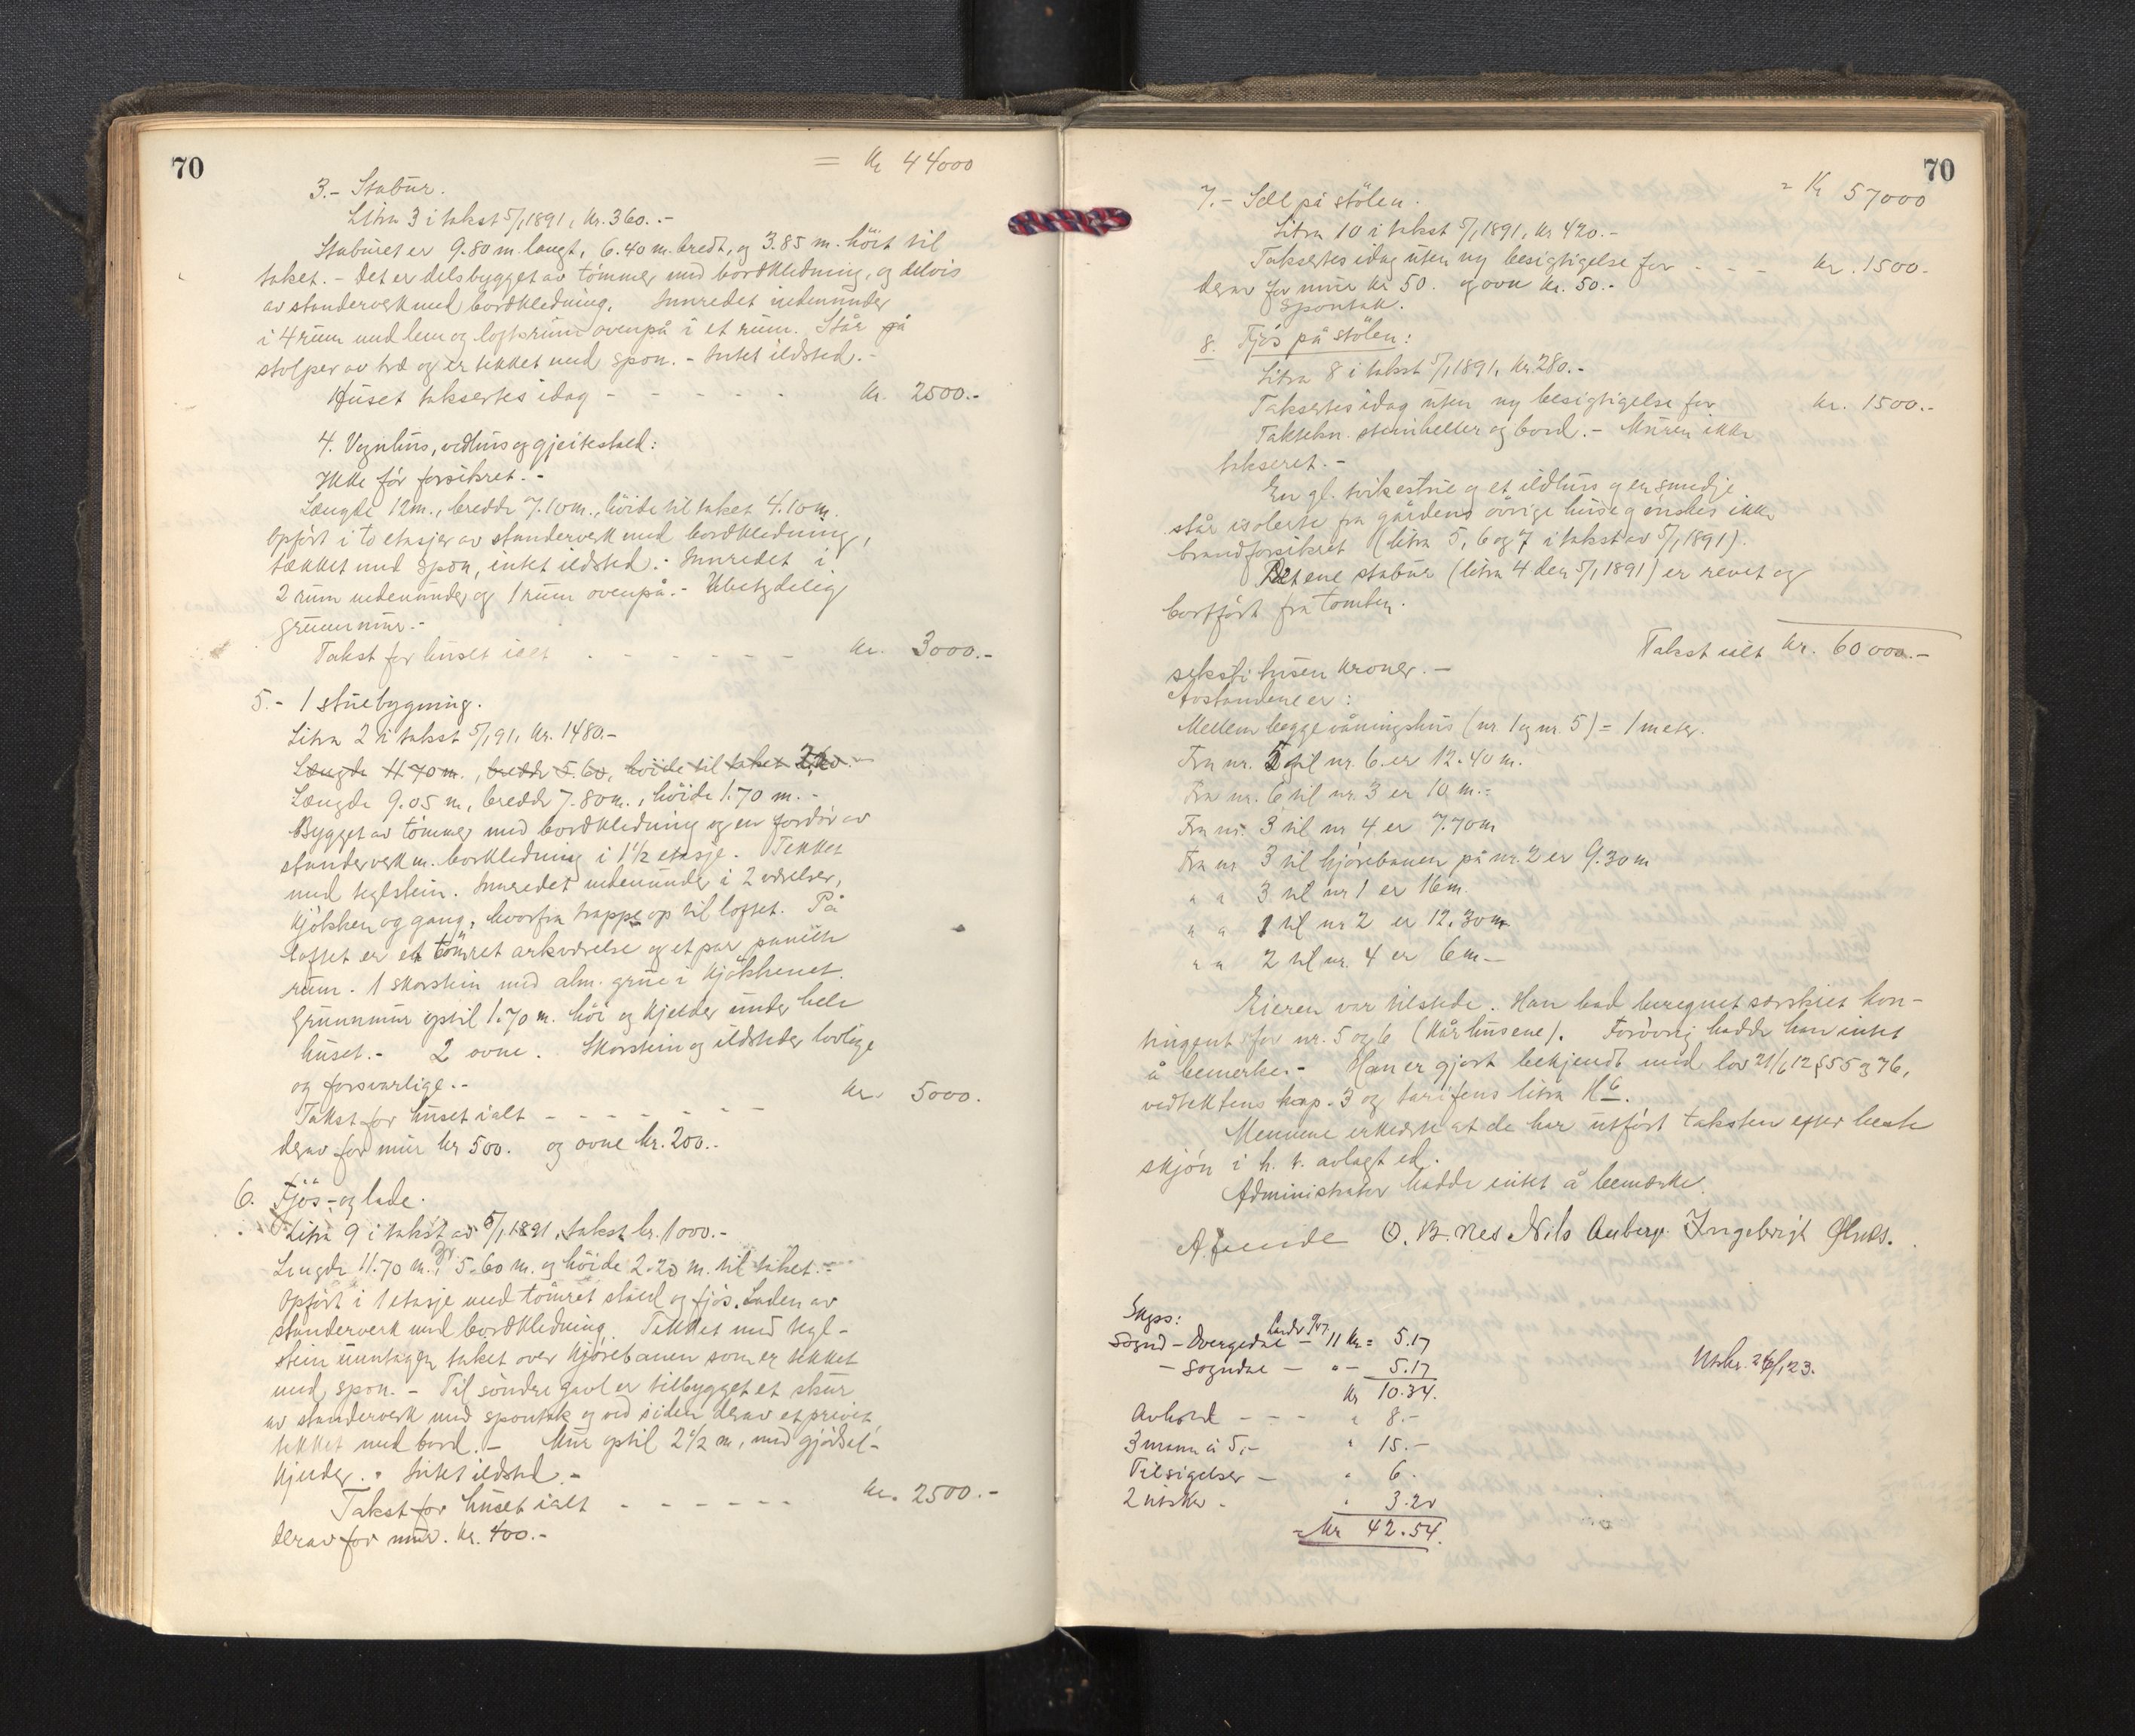 70
= Kr 44000
3.- Stabur.
Litra 3 i takst 5/1 1891, Kr. 360.-
Staburet er 9.80 m. langt, 6.40 m. bredt, og 3.85 m. höit til
taket. - Det er dels bygget av tömmer med bordkledning, og delvis
av standerverk med bordkledning. Innredet nedenunder
i 4 rum med lem og loftsrum ovenpå i et rum. Står på
stolper av træ og er tekket med spon. - Intet ildsted. -
Huset taksertes idag - - - - - Kr. 2500.-
4. Vognhus, vedhus og gjeitestald:
Ikke för forsikret. -
Længde 12 m., bredde 7.10 m., höide til taket 4.10 m.
Opfört i to etasjer av standerverk med bordkledning,
tækket med spon, intet ildsted. - Innredet i
2 rum nedenunder og 1 rum ovenpå. - Ubetydelig
grunnmur. -
Takst for huset ialt - - - - - - Kr. 3000.-
5.- 1 stuebygning.
Litra 2 i takst 5/1 91, Kr. 1480.-
Længde 11.70 m., bredde 5.60, höide til taket 2.20.-
Længde 9.05 m, bredde 7.80 m., höide 1.70 m. -
Bygget av tömmer med bordkledning og en fordör av
standerverk m. borkledning i 1 1/2 etasje. Tekket
med teglstein. Innredet nedenunder i 2 værelser,
kjökken og gang, hvorfra trappe op til loftet. På
loftet er et tömret arkværelse og et par panelte
rum. 1 skorstein med alm. grue i kjökkenet.
Grunnmur optil 1.70 m. höi og kjelder under hele
huset. - 2 ovne. Skorstein og ildsteder lovlige
og forsvarlige. -
Takst for huset ialt - - - - - - - Kr. 5000.
derav for mur kr 500. og ovne kr. 200.-
6. Fjös- og lade.
Litra 9 i takst av 5/1 1891, takst kr. 1000.-
Lengde 11.70 m., br 5.60 m. og höide 2.20 m. til taket. -
Opfört i 1 etasje med tömret stald og fjös. Laden av
standerverk med bordkledning. Tekket med tegl-
stein unntagen taket over kjörebanen som er tekket
med spon. - Til söndre gavl er tilbygget et skur
av standerverk med spontak og ved siden derav et privet
tekket med bord. - Mur optil 2 1/2 m, med gjödsel-
kjelder. - Intet ildsted. -
Takst for huset ialt - - - - - - Kr. 2500.-
derav for mur. Kr. 400.-
70
= Kr 57000
7.- Sæl på stölen.
Litra 10 i takst 5/1 1891, Kr 420.-
Taksertes idag uten ny besigtigelse for - - - Kr. 1500.-
derav for mur Kr 50. og ovn Kr. 50.-
Spontak.
8. Fjös på stölen:
Litra 8 i takst 5/1 1891, Kr. 280.-
Taksertes idag uten ny besigtigelse for Kr. 1500.-
Taktekn. steinheller og bord. - Muren ikke
takseret. -
En gl. svikestue og et ildhus og en smedje
står isolerte fra gårdens övrige huse og önskes ikke
brandforsikret (litra 5, 6 og 7 i takst av 5/1 1891).
Det ene stabur (litra 4 den 5/1 1891) er revet og
bortfört fra tomten.
Takst ialt Kr. 60000.-
seksti tusen kroner. -
Avstandene er:
Mellem begge våningshus (nr. 1 og nr. 5) = 1 meter.
Fra nr. 5 til nr. 6 er 12.40 m.
Fra nr. 6 til nr. 3 er 10 m. -
Fra nr. 3 til nr 4 er 7.70 m
Fra nr 3 til kjörebanen på nr. 2 er 9.30 m
" " 3 til nr 1 er 16 m.
" " 1 til nr 2 er 12.30 m
" " 2 til nr. 4 er 6 m -
Eieren var tilstede. Han bad beregnet særskilt kon-
tingent for nr. 5 og 6 (kårhusene). Forövrig hadde han intet
å bemerke. - Han er gjort bekjendt med lov 21/6 12 § 55 og 76,
vedtektens kap. 3 og tarifens litra H 6.
Mennene erklærte at de har utfört taksten efter beste
skjön i h. t. avlagt ed.
Administrator hadde intet å bemerke.
O. B. Nes Nils Ingebrigt
Skyss:
Sogndal - 11 Km = 5.17
- Sogndal - " - 5.17
Kr 10.34.
Avhold - - - " 8.-
3 mann à 5,- " 15.-
Tilsigelser - " 6.
2 utskr. - " 3.20
= Kr 42.54.
Utskr. 26/1 23.